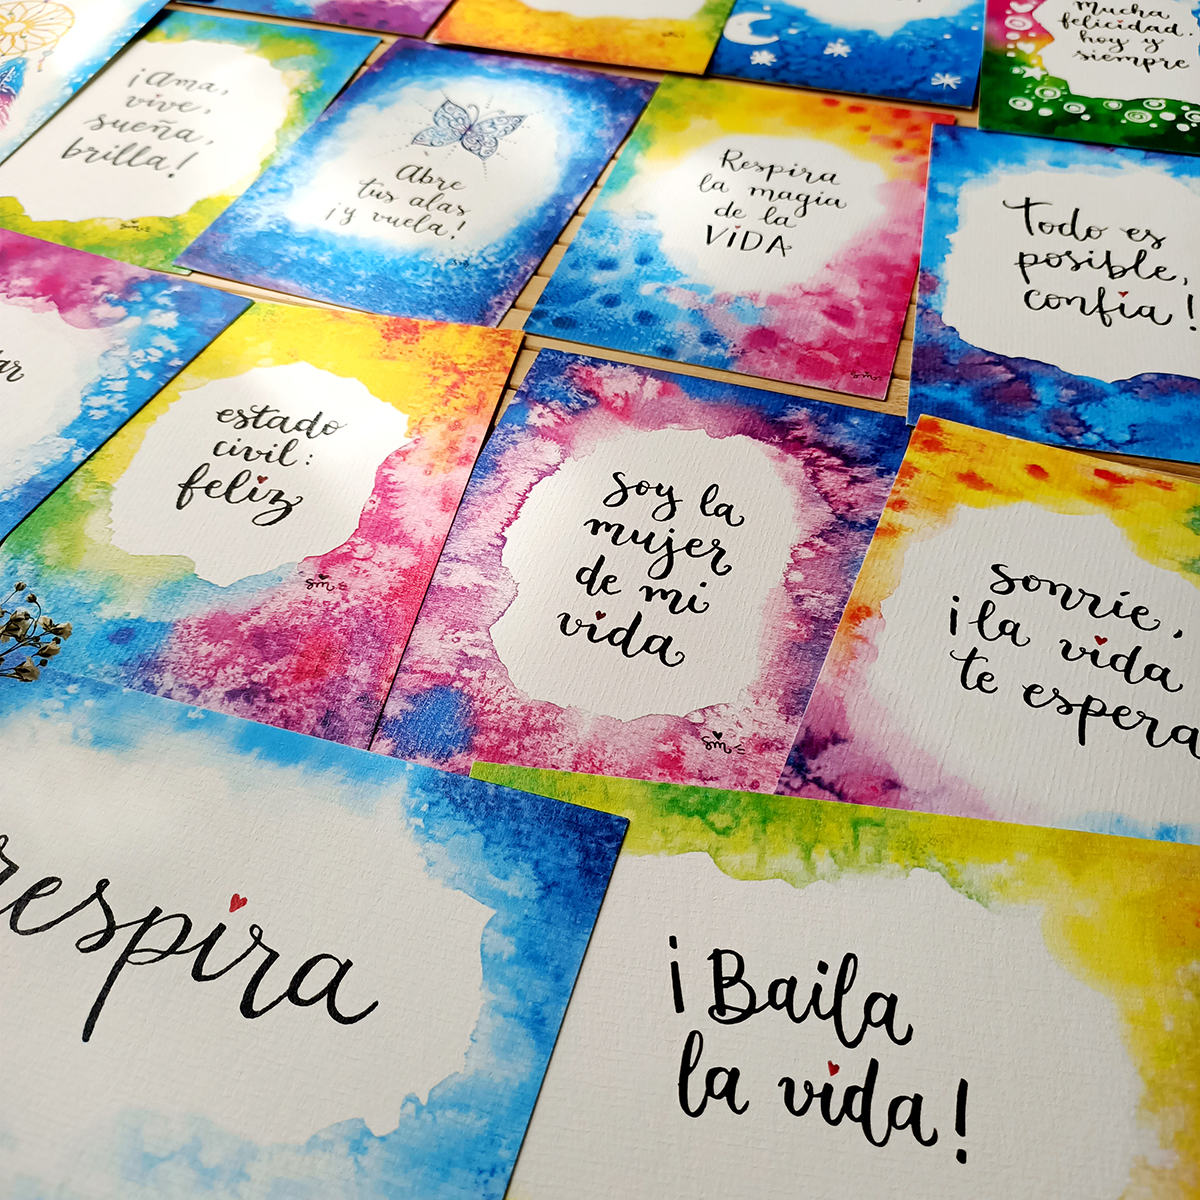 Mucha
felicidad.
hoy y
siempre
¡Ama,
vive,
sueña,
brilla!
sm
Abre
tus alas
¡y vuela!
Respira
la magia
de la
ViDA
sm
Todo es
posible,
confía!
estado
civil:
feliz
sm
soy la
mujer
de mi
vida
sm
sonríe,
¡la vida
te espera
respira
¡Baila
la vida!